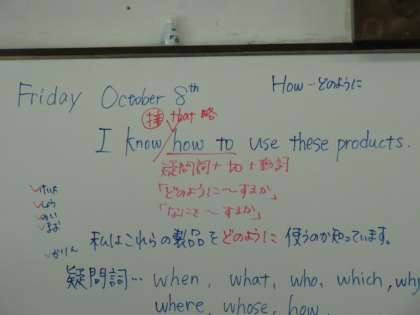 Friday October 8th
How - どのように
接 that 略
I know how to use these products.
疑問詞 + to + 動詞
「どのように〜するか」
「なにを〜するか」
私はこれらの製品をどのように使うのか知っています。
かりん
疑問詞… when, what, who, which, why
where, whose, how